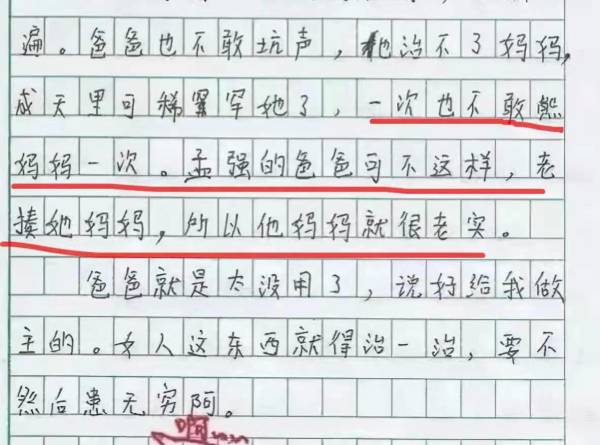 遍。爸爸也不敢坑声，他治不了妈妈，
成天里可稀罕她了，一次也不敢熊
妈妈一次。孟强的爸爸可不这样，老
揍她妈妈，所以他妈妈就很老实。
爸爸就是太没用了，说好给我做
主的。女人这东西就得治一治，要不
然后患无穷阿。